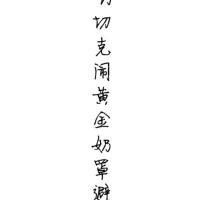 切克闹黄金奶罩避